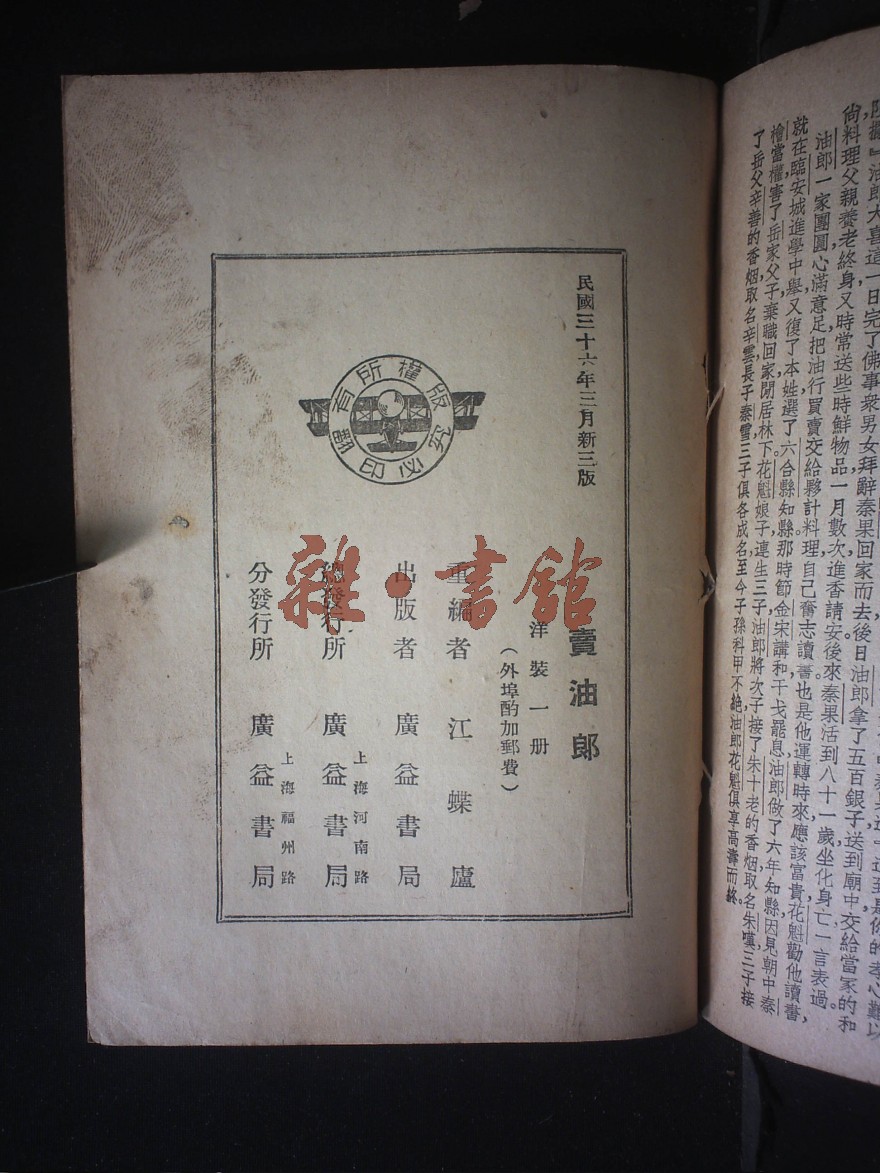 陀擴』油郎大喜這一日完了佛事衆男女拜辭秦果回家而去後日油郎拿了五百銀子送到廟中交給當家的和
尙料理父親養老終身又時常送些時鮮物品一月數次進香請安後來秦果活到八十一歲坐化身亡一言表過。
油郎一家團圓心滿意足把油行買賣交給夥計料理自己奮志讀書也是他運轉時來應該富貴花魁勸他讀書，
就在臨安城進學中舉又復了本姓選了六合縣知縣那時節金宋講和干戈罷息油郎做了六年知縣因見朝中秦
檜當權害了岳家父子棄職回家閉居林下花魁娘子連生三子油郎將次子接了朱十老的香烟取名朱嘆三子接
了岳父辛善的香烟取名辛雲長子秦雪三子俱各成名至今子孫科甲不絕油郎花魁俱享高壽而終。
民國三十六年三月新三版
版權所有
翻印必究
賣油郎
洋裝一册
（外埠酌加郵費）
重編者 江蝶廬
出版者 廣益書局
總發行所 上海河南路 廣益書局
分發行所 上海福州路 廣益書局
雜·書館